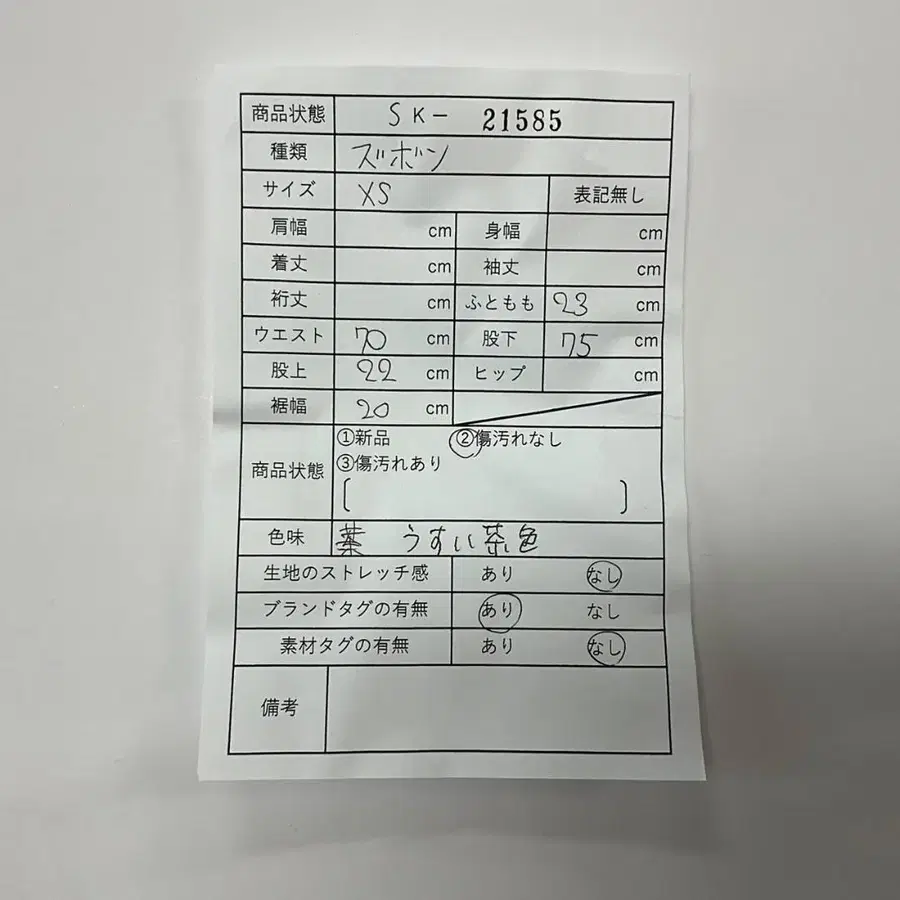 商品状態 SK- 21585
種類 ズボン
サイズ XS 表記無し
肩幅 cm 身幅 cm
着丈 cm 袖丈 cm
裄丈 cm ふともも 23 cm
ウエスト 70 cm 股下 75 cm
股上 22 cm ヒップ cm
裾幅 20 cm
商品状態 ①新品 ②傷汚れなし
③傷汚れあり
[ ]
色味 うすい茶色
生地のストレッチ感 あり なし
ブランドタグの有無 あり なし
素材タグの有無 あり なし
備考